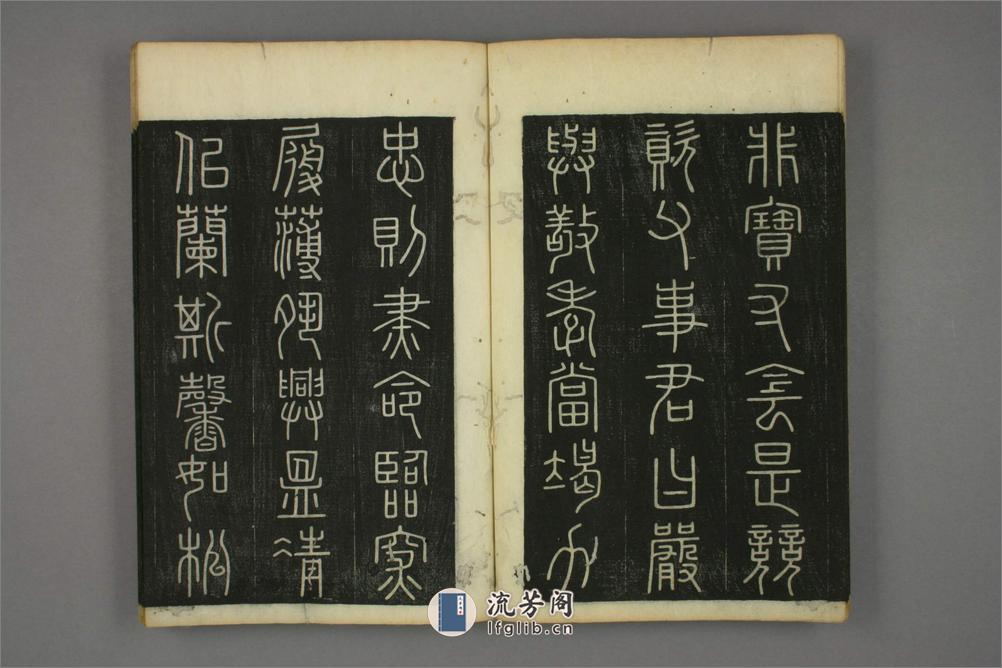 非寶寸陰是競
資父事君曰嚴
與敬孝當竭力
忠則盡命臨深
履薄夙興溫凊
似蘭斯馨如松
流芳阁
lfglib.cn